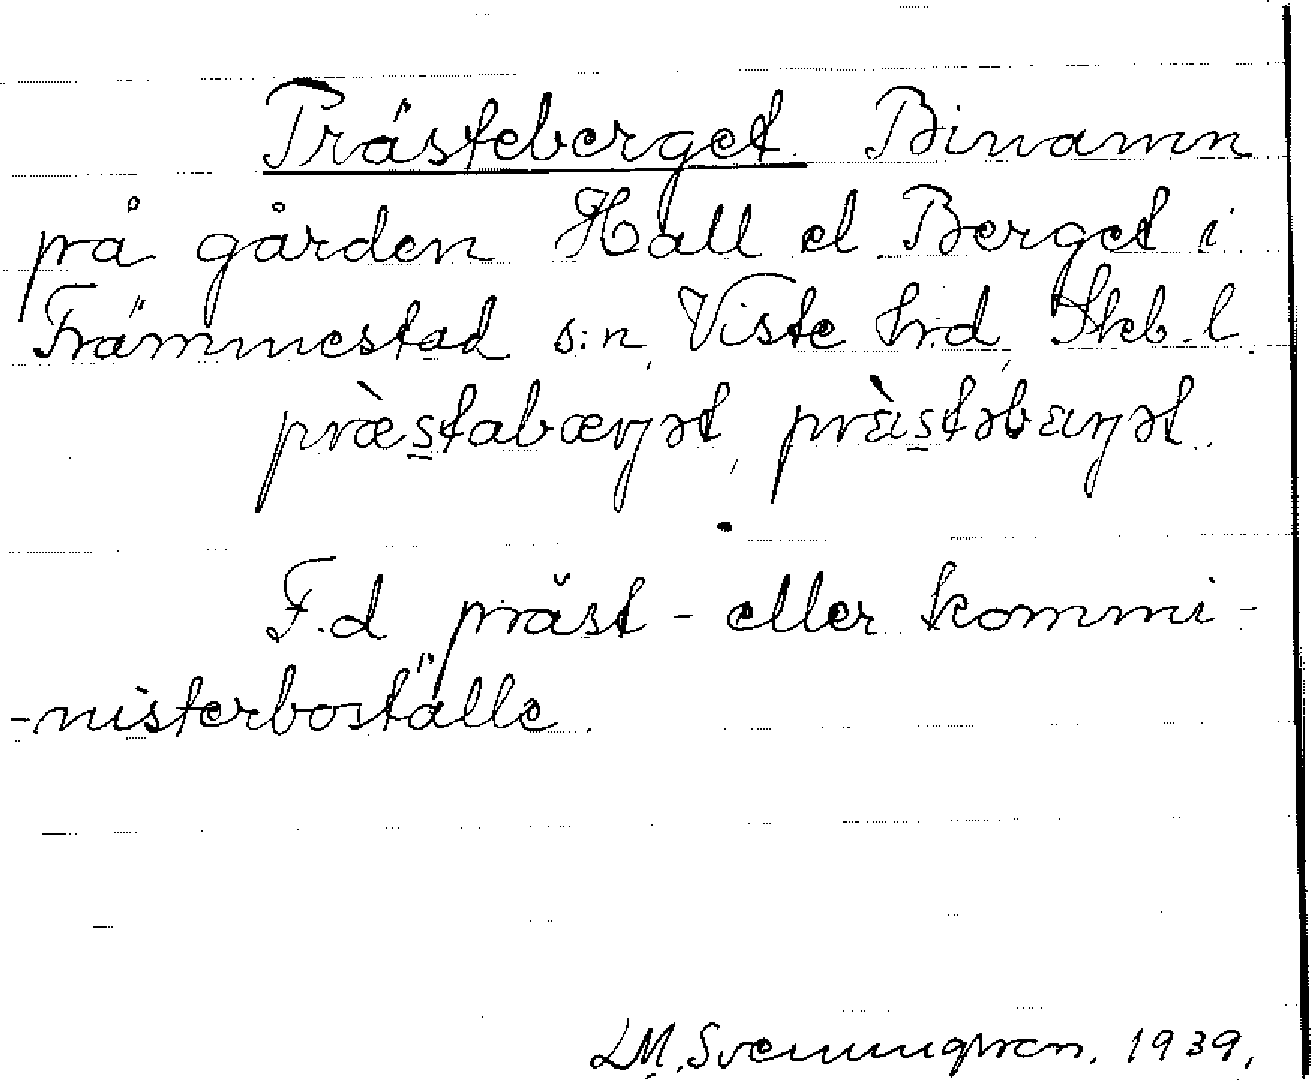 Prästeberget. Binamn
på gården Hall el Berget i
Främmestad s:n, Viste hrd, Skb. l.
præ̀stabæŋət, prɛ̀stəbɛŋət.
F.d präst - eller kommi-
-nisterboställe.
LM. Svenungsson. 1939.